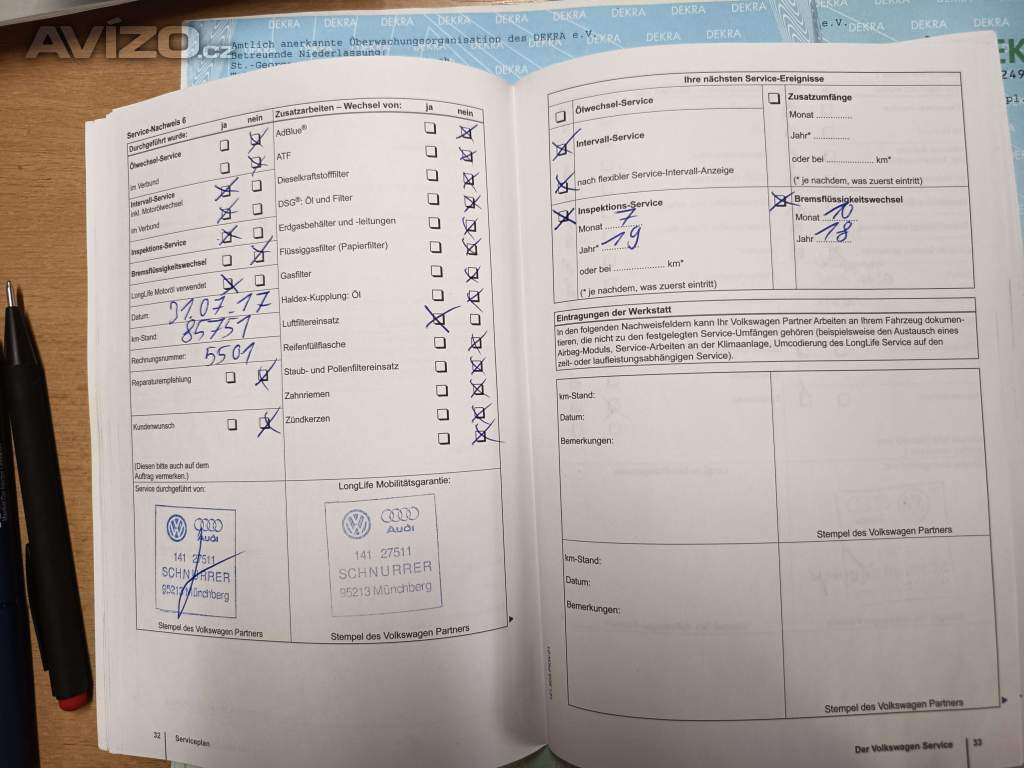 AVÍZO.cz
DEKRA DEKRA DEKRA DEKRA DEKRA
Amtlich anerkannte Überwachungsorganisation des DEKRA e.V.
Betreuende Niederlassung:
St.-Georg
e.V.
Service-Nachweis 6
Durchgeführt wurde: ja nein
Ölwechsel-Service
im Verbund
Intervall-Service
inkl. Motorölwechsel
im Verbund
Inspektions-Service
Bremsflüssigkeitswechsel
LongLife Motoröl verwendet
Datum: 31.07.17
km-Stand: 85751
Rechnungsnummer: 5501
Reparaturempfehlung
Kundenwunsch
(Diesen bitte auch auf dem
Auftrag vermerken.)
Service durchgeführt von:
Audi
141 27511
SCHNURRER
95213 Münchberg
Stempel des Volkswagen Partners
Zusatzarbeiten – Wechsel von: ja nein
AdBlue®
ATF
Dieselkraftstofffilter
DSG®: Öl und Filter
Erdgasbehälter und -leitungen
Flüssiggasfilter (Papierfilter)
Gasfilter
Haldex-Kupplung: Öl
Luftfiltereinsatz
Reifenfüllflasche
Staub- und Pollenfiltereinsatz
Zahnriemen
Zündkerzen
LongLife Mobilitätsgarantie:
Audi
141 27511
SCHNURRER
95213 Münchberg
Stempel des Volkswagen Partners
32 Serviceplan
Ihre nächsten Service-Ereignisse
Ölwechsel-Service
Intervall-Service
nach flexibler Service-Intervall-Anzeige
Zusatzumfänge
Monat ..............
Jahr* ..............
oder bei .................. km*
(* je nachdem, was zuerst eintritt)
Inspektions-Service
Monat 7
Jahr* 19
oder bei .................... km*
(* je nachdem, was zuerst eintritt)
Bremsflüssigkeitswechsel
Monat 10
Jahr 18
Eintragungen der Werkstatt
In den folgenden Nachweisfeldern kann Ihr Volkswagen Partner Arbeiten an Ihrem Fahrzeug dokumen-
tieren, die nicht zu den festgelegten Service-Umfängen gehören (beispielsweise den Austausch eines
Airbag-Moduls, Service-Arbeiten an der Klimaanlage, Umcodierung des LongLife Service auf den
zeit- oder laufleistungsabhängigen Service).
km-Stand:
Datum:
Bemerkungen:
Stempel des Volkswagen Partners
km-Stand:
Datum:
Bemerkungen:
Stempel des Volkswagen Partners
Der Volkswagen Service 33